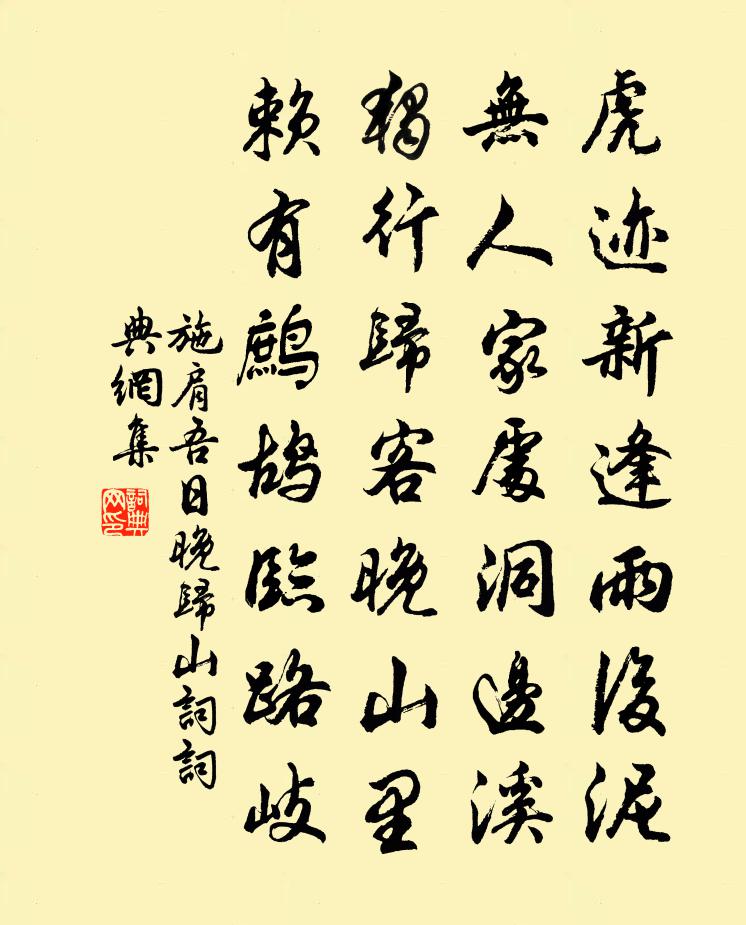 虎迹新逢雨後泥
無人家處洞邊溪
獨行歸客晚山里
賴有鷓鴣臨路岐
施肩吾日晚歸山詞詞
典網集
詞典
网印